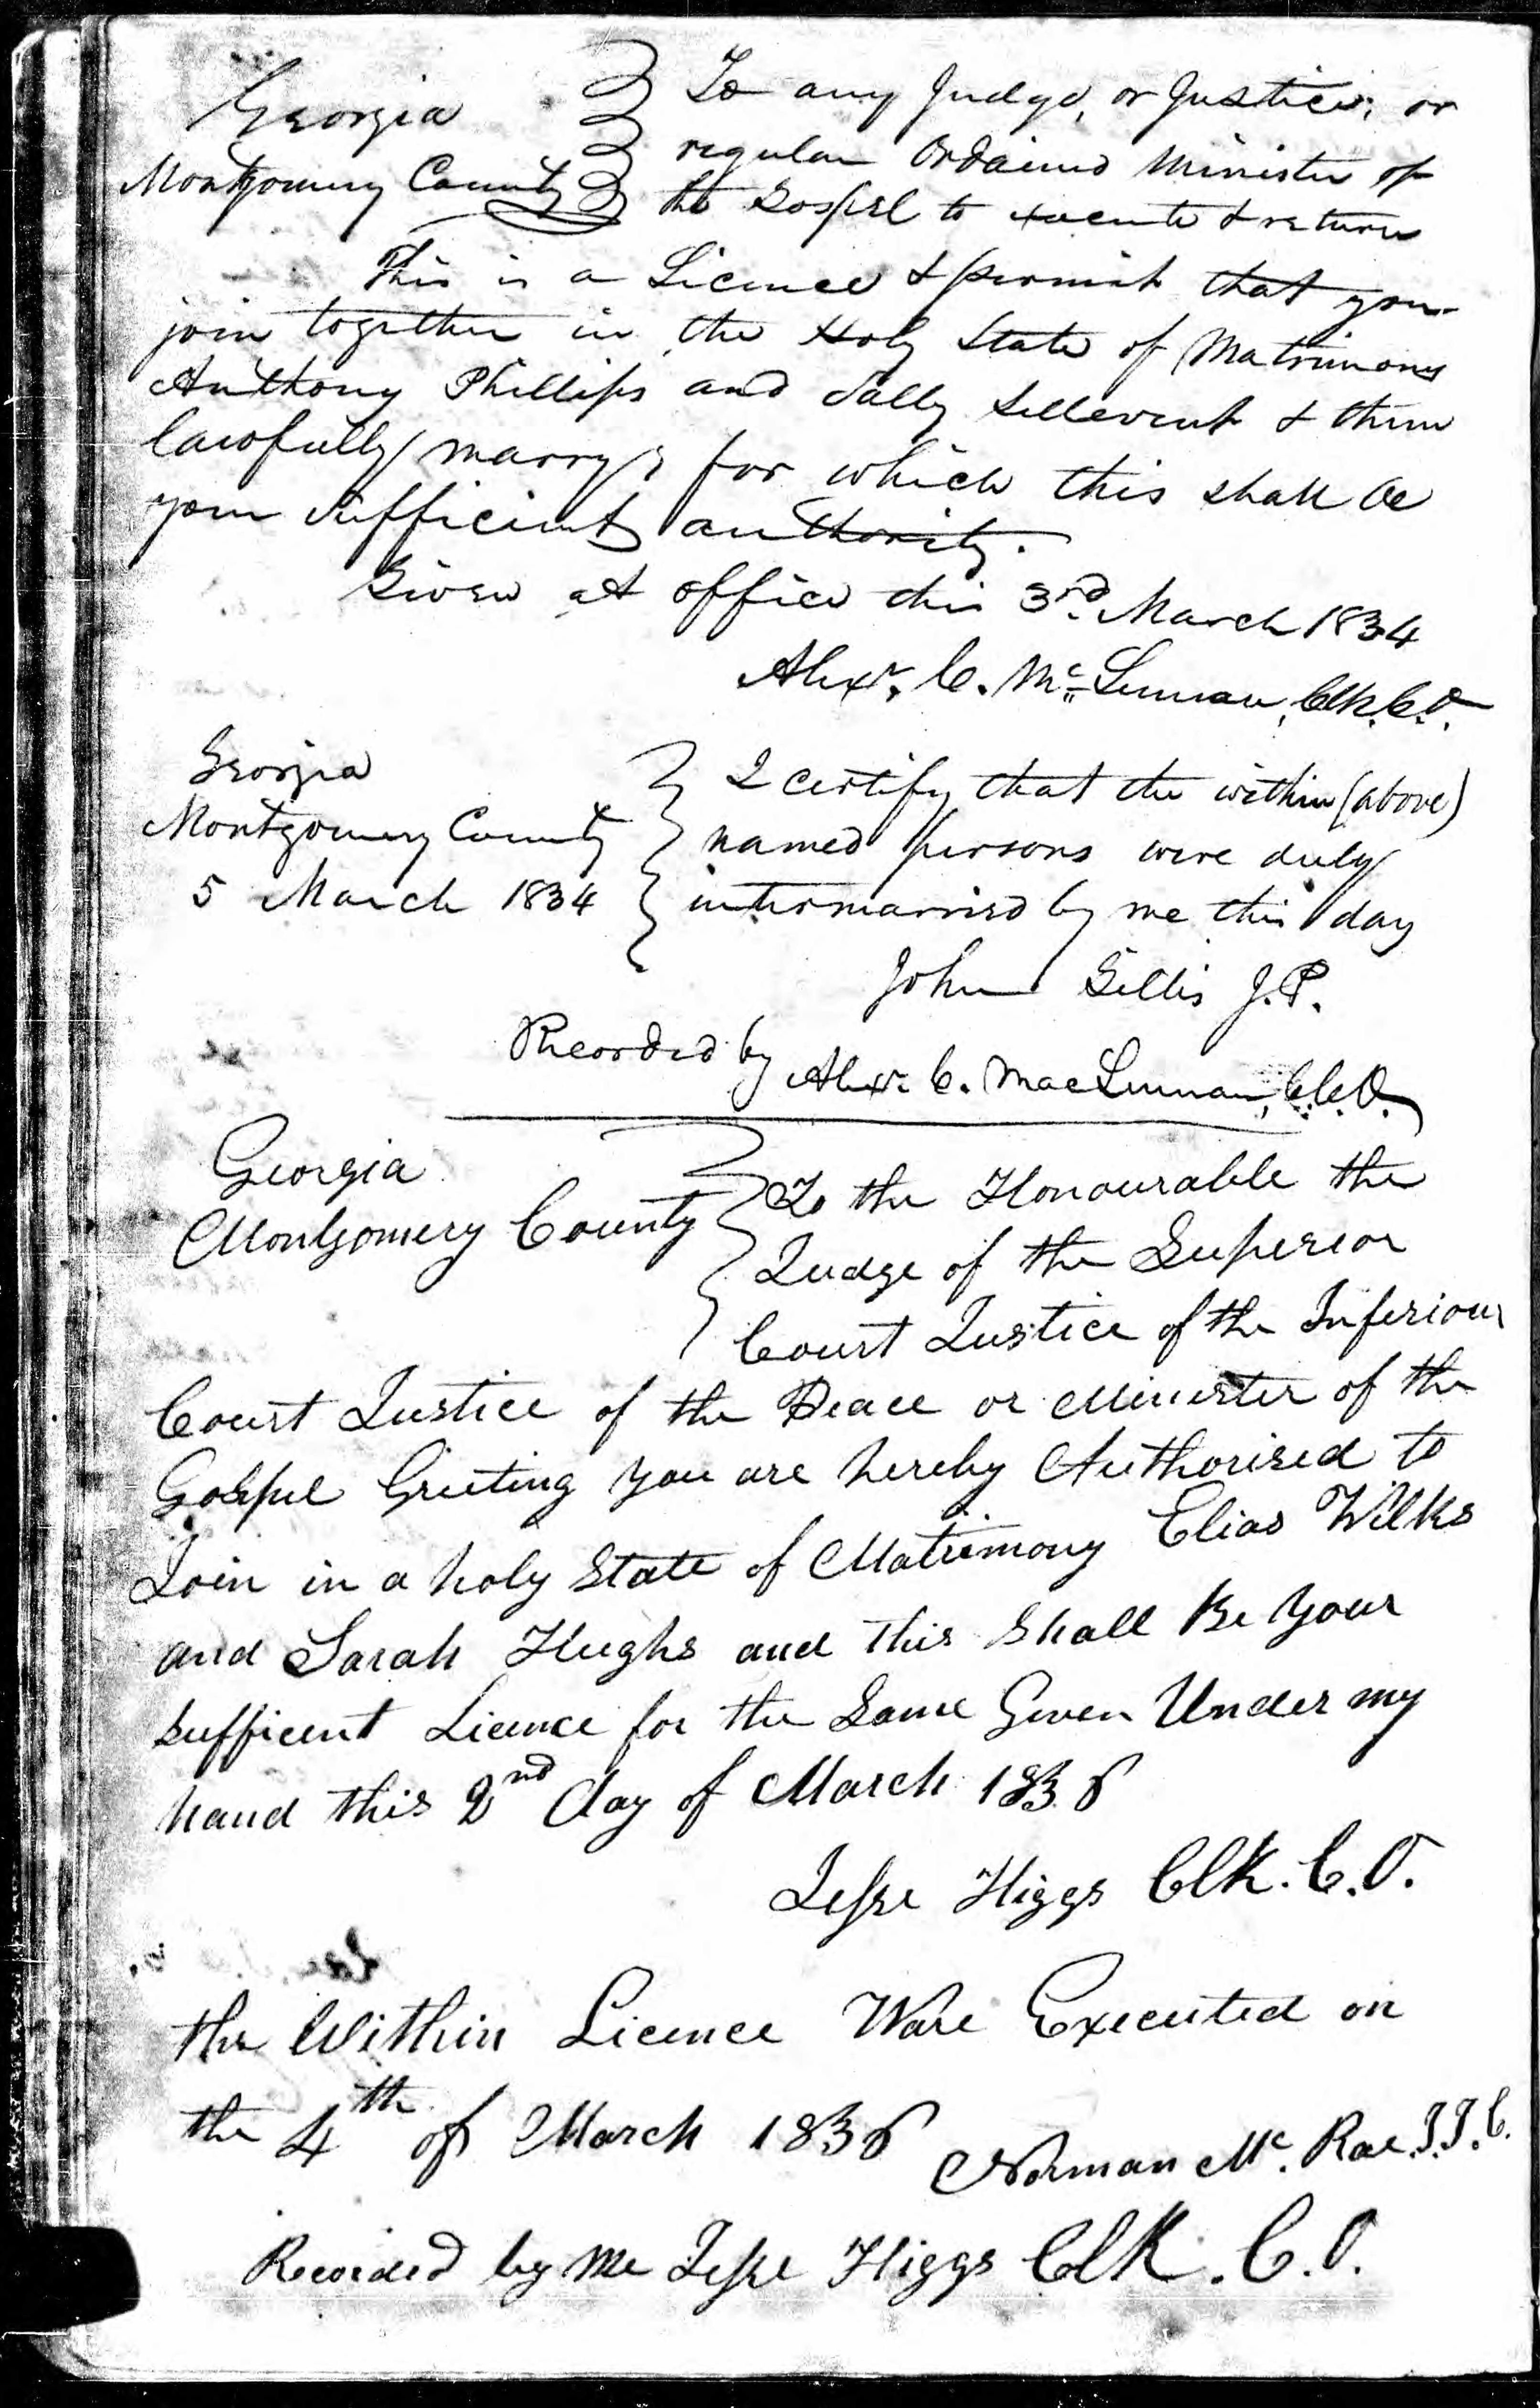 Georgia
Montgomery County
To any Judge, or Justice, or
regular Ordained Minister of
the Gospel to execute & return
This is a Licence & permit that you
join together in the Holy State of Matrimony
Anthony Phillips and Sally Sellevent & them
lawfully marry, for which this shall be
your sufficient authority.
Given at office this 3rd. March 1834
Alexr. C. Mc Lennan, Clk. C.O.
Georgia
Montgomery County
5 March 1834
I certify that the within (above)
named persons were duly
intermarried by me this day
John Gillis J.P.
Recorded by
Alexr. C. MacLennan, C.C.O.
Georgia
Montgomery County
To the Honourable the
Judge of the Superior
Court Justice of the Inferiour
Court Justice of the Peace or Minister of the
Gospel Greeting you are hereby Authorised to
Join in a holy State of Matrimony Elias Wilks
and Sarah Hughs and this Shall Be Your
sufficent Licence for the Same Given Under my
hand this 2nd day of March 183
Jesse Higgs Clk. C.O.
the Within Licence Ware Executed on
the 4th of March 183
Norman Mc. Rae J.J.C.
Recorded by me Jesse Higgs Clk. C.O.